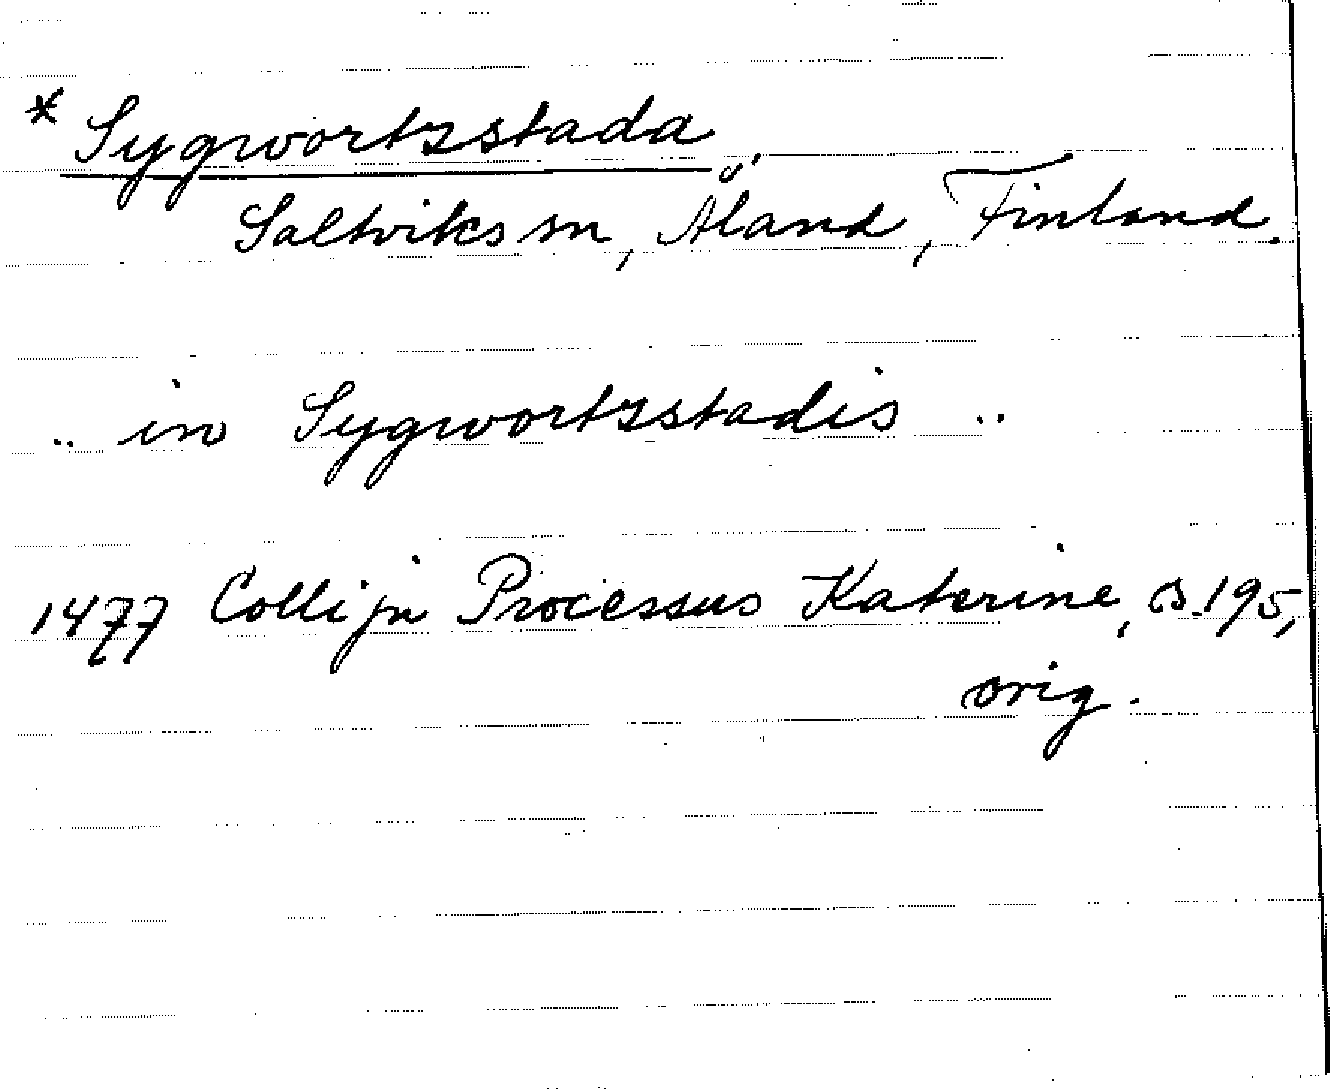 * Sygwortzstada,
Saltviks sn, Åland, Finland.
.. in Sygwortzstadis ..
1477 Collijn Processus Katerine, s. 195,
orig.